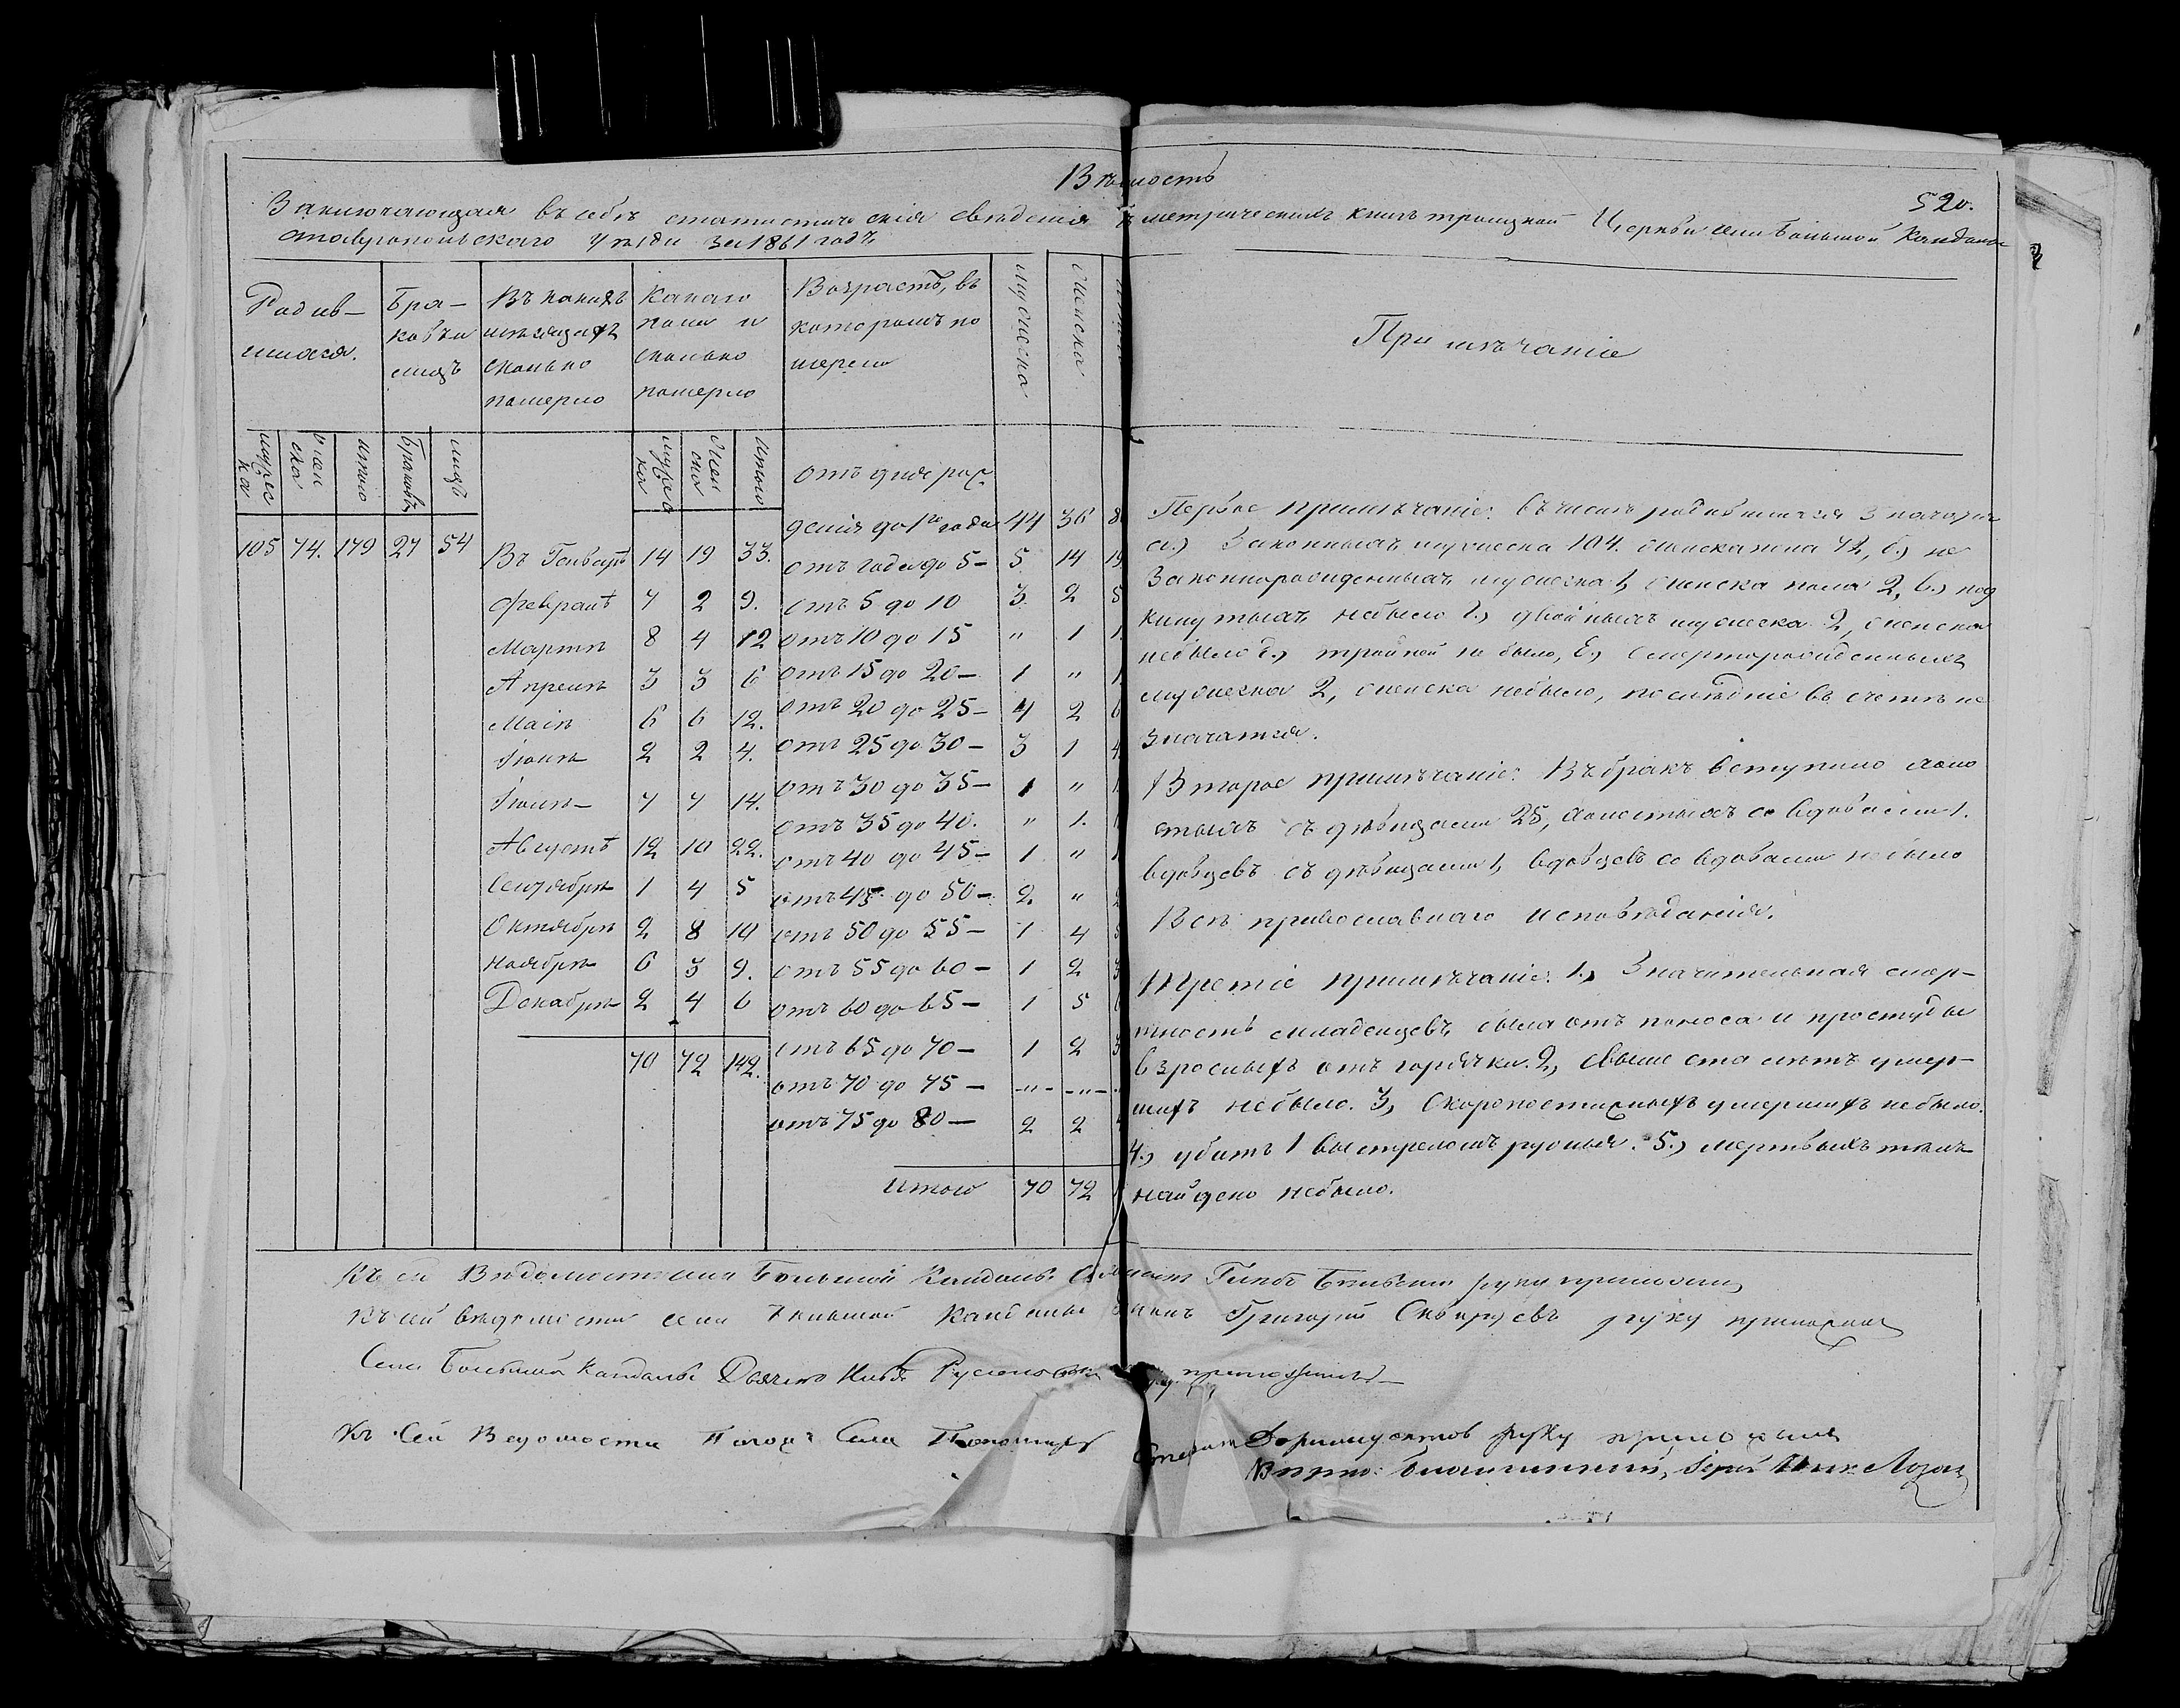 Вѣдомость
520.
Заключающая въ себѣ статистическія свѣденія метрическихъ книгъ троицкой Церкви села Большой Кандалы
Ставропольскаго уѣзда за 1861 годъ
Родив-
шихся.
Бра-
ковъ и
лицъ
Въ какихъ
мѣсяцахъ
сколько
померло
Какаго
пола и
сколько
померло
Возрастъ, въ
которомъ по
мерли
мужеска
женска
Примѣчаніе
мужес
ка
жен
ска
итого
Браковъ
лицъ
мужес
ка
жен
ска
итого
105 74. 179 27 54
отъ дня рож
денія до 1го года 44 36
Въ Генварѣ 14 19 33. отъ года до 5 – 5 14 19
Февралѣ 7 2 9. отъ 5 до 10 3 2 5
Мартѣ 8 4 12 отъ 10 до 15 " 1 1
Апрелѣ 3 3 6 отъ 15 до 20 – 1 " 1
Маiѣ 6 6 12. отъ 20 до 25 – 4 2 6
Iюнѣ 2 2 4. отъ 25 до 30 – 3 1 4
Iюлѣ – 7 7 14. отъ 30 до 35 – 1 " 1
отъ 35 до 40. " 1.
Августѣ 12 10 22. отъ 40 до 45 – 1 " 1
Сентябрѣ 1 4 5 отъ 45 до 50 – 2. "
Октябрѣ 2 8 10 отъ 50 до 55 – 1 4
Ноябрѣ 6 3 9. отъ 55 до 60 – 1 2 3
Декабрѣ 2 4 6 отъ 60 до 65 – 1 5
70 72 142. отъ 65 до 70 – 1 2 3
отъ 70 до 75 – " "
отъ 75 до 80 – 2 2
Итого 70 72
Первое примѣчаніе: въ числѣ родившихся значатся
а.) Законныхъ мужеска 104. женска пола 72, б.) не
законнорожденныхъ мужеска 1, женска пола 2, в.) под
кинутыхъ небыло г.) двойныхъ мужеска 2, женска
небыло д.) тройной не было, е.) Смерторожденныхъ
мужеска 2, женска небыло, послѣдніе въ счетъ не
значатся.
Второе примѣчаніе: Въ бракъ вступило холо
стыхъ съ дѣвицами 25, холостыхъ со вдовами 1.
вдовцевъ съ дѣвицами 1, вдовцевъ со вдовами небыло
Всѣ православнаго исповѣданія.
Третіе примѣчаніе: 1.) Значительная смер-
тность младенцевъ была отъ поноса и простуды
взрослыхъ отъ горячки. 2, свыше ста лѣтъ умер-
шихъ небыло. 3, Скоропостижныхъ умершихъ небыло.
4.) убитъ 1 выстреломъ ружья. 5.) мертвыхъ тѣлъ
найдено небыло.
Къ сей Вѣдомости села Большой Кандалы Глѣбъ руку приложилъ
Къ сей вѣдомости села Большой Кандалы Григорій руку приложилъ
Села Большой Кандалы Дьячекъ приложилъ –
Къ Сей Ведомости Тогожъ Села Пономарь Степанъ руку приложилъ
Благочинный, Iерей